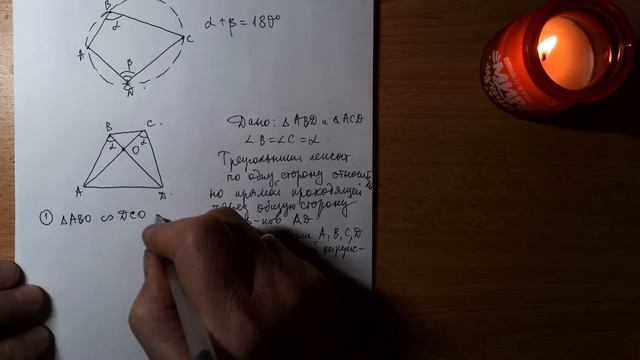 B
α
A
C
β
D
α + β = 180°
B
C
α
α
O
A
D
Дано: △ABD и △ACD
∠B=∠C=α.
Треугольники лежат
по одну сторону относит
но прямой проходящей
через общую сторону
AD
A, B, C, D
① △ABO ∽ DCO